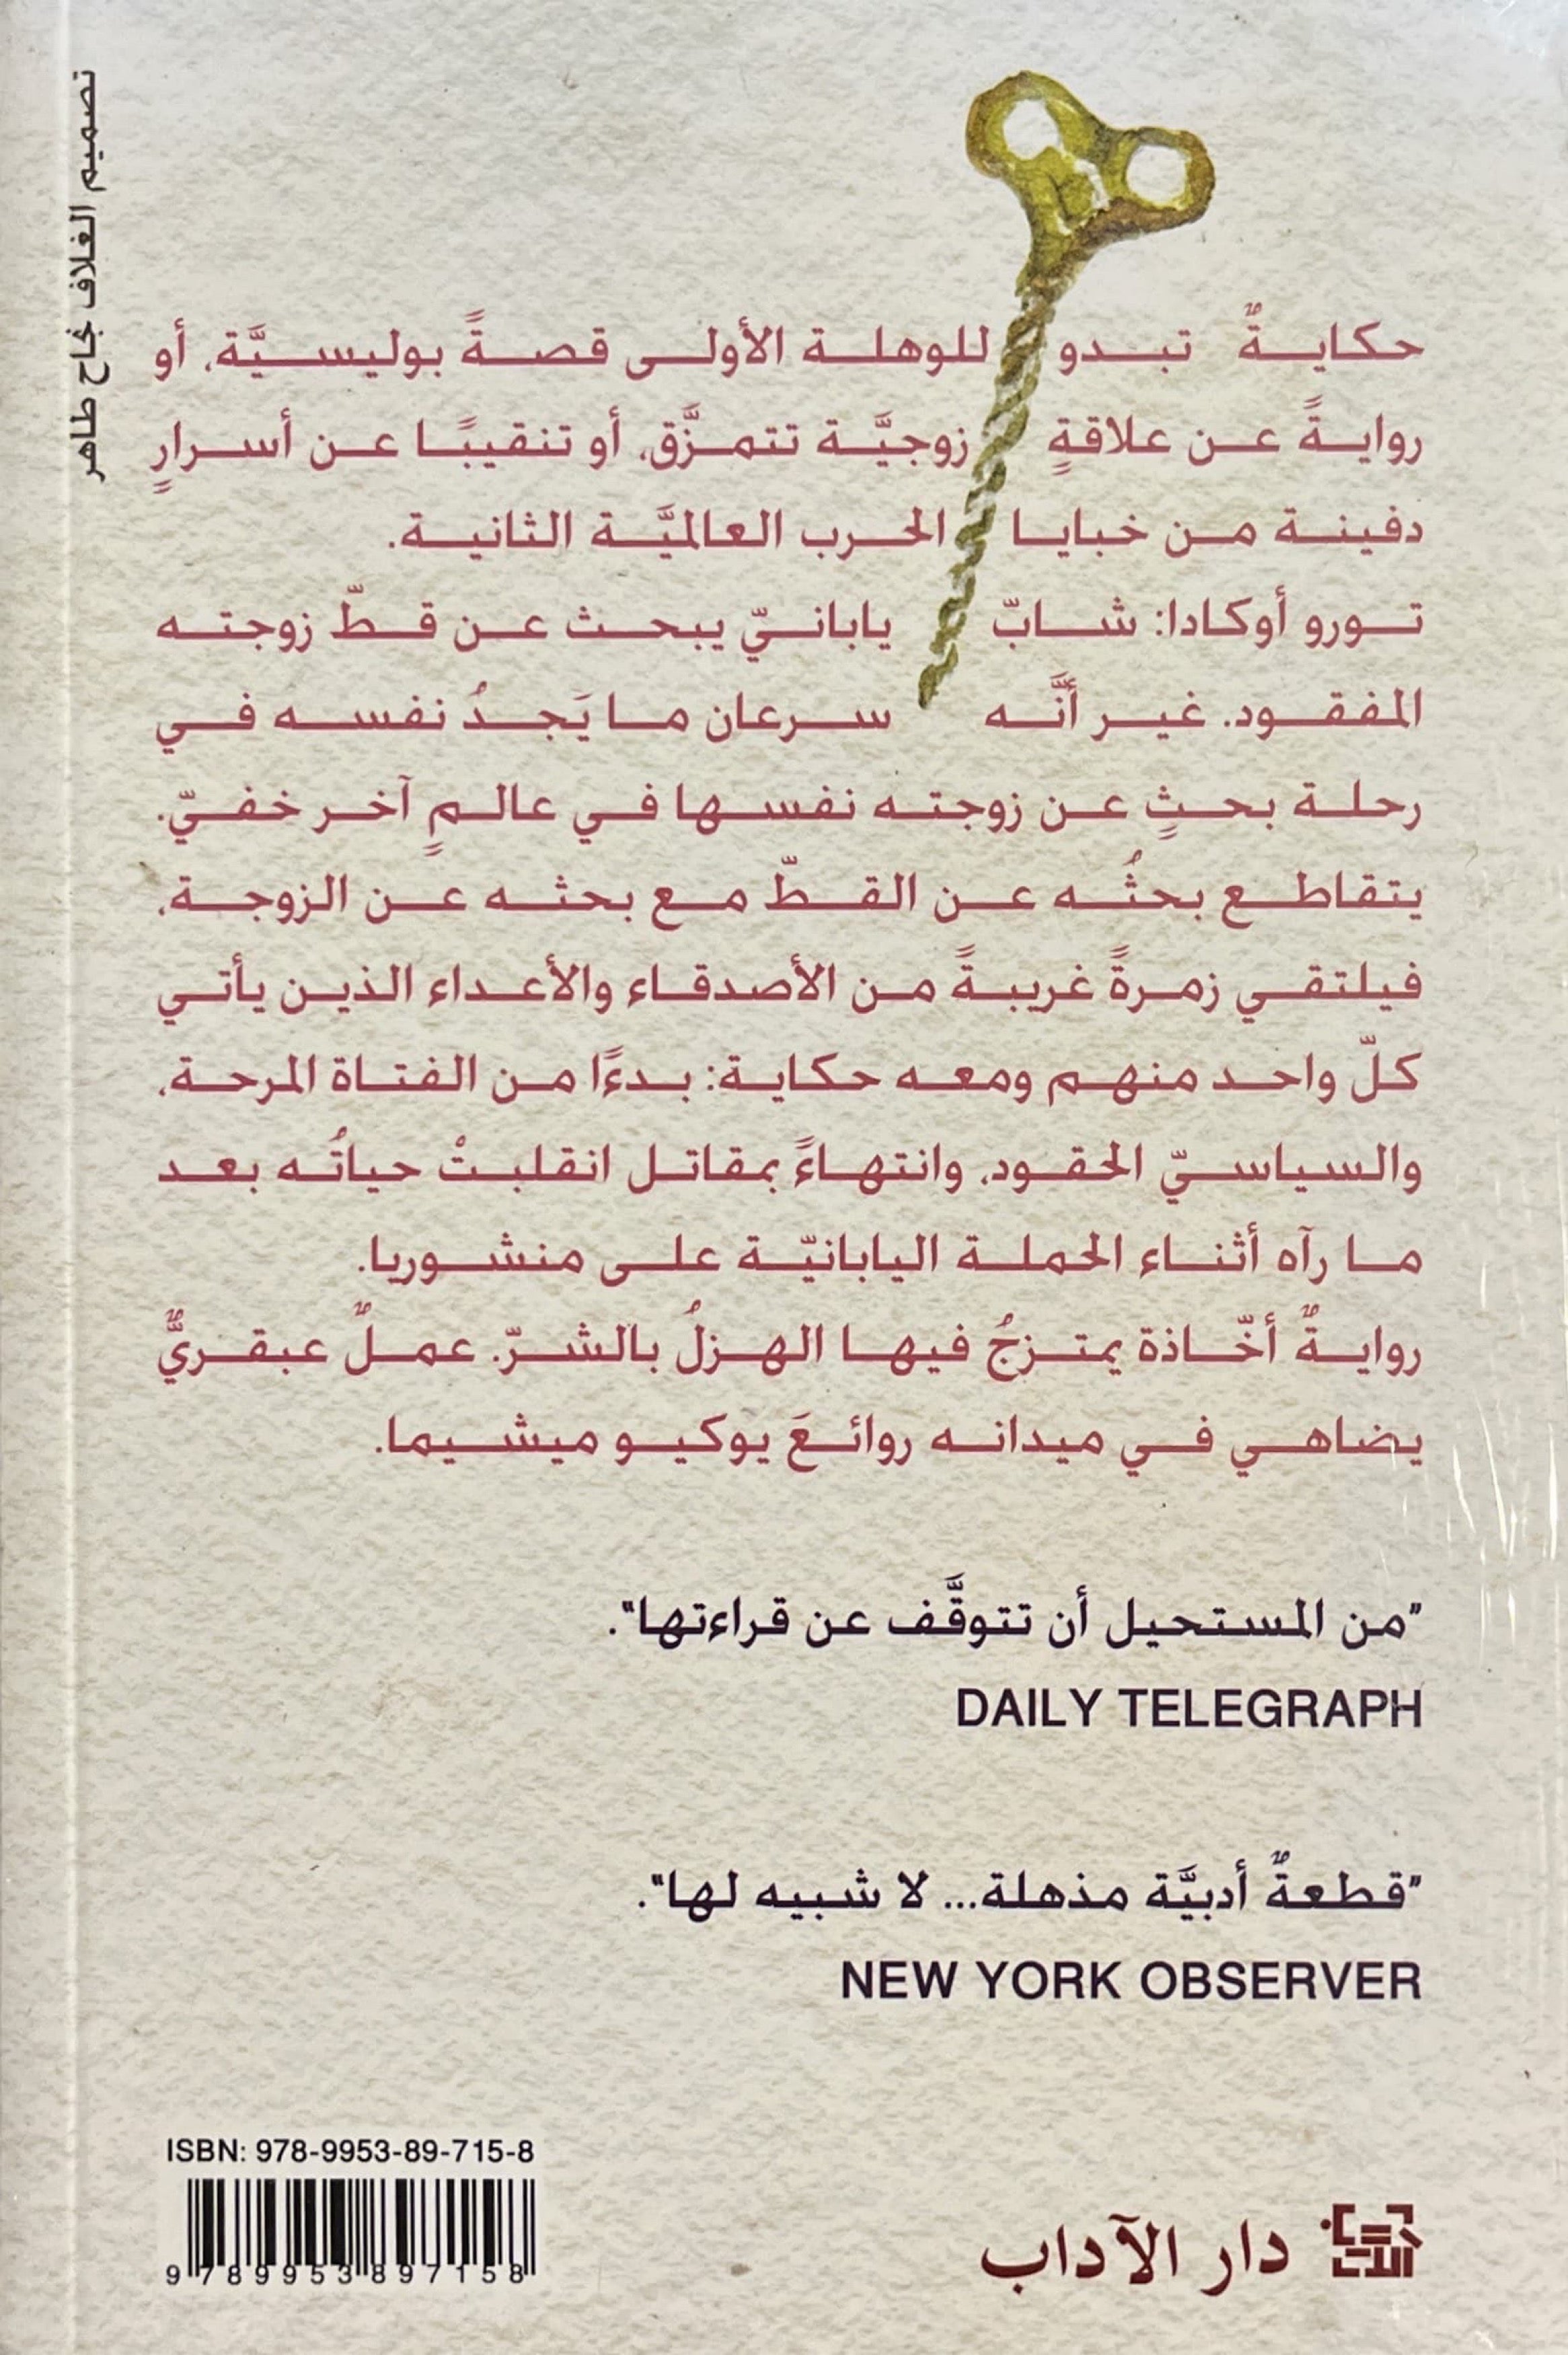 تصميم الغلاف نجاح طاهر
حكايةٌ تبدو للوهلة الأولى قصةً بوليسيَّة، أو
روايةً عن علاقةٍ زوجيَّة تتمزَّق، أو تنقيبًا عن أسرارٍ
دفينة من خبايا الحرب العالميَّة الثانية.
تورو أوكادا: شابّ يابانيّ يبحث عن قطّ زوجته
المفقود. غير أنَّه سرعان ما يَجدُ نفسه في
رحلة بحثٍ عن زوجته نفسها في عالمٍ آخر خفيّ.
يتقاطع بحثُه عن القطّ مع بحثه عن الزوجة،
فيلتقي زمرةً غريبةً من الأصدقاء والأعداء الذين يأتي
كلّ واحد منهم ومعه حكاية: بدءًا من الفتاة المرحة،
والسياسيّ الحقود، وانتهاءً بمقاتل انقلبتْ حياتُه بعد
ما رآه أثناء الحملة اليابانيّة على منشوريا.
روايةٌ أخّاذة يمتزجُ فيها الهزلُ بالشرّ. عملٌ عبقريٌّ
يضاهي في ميدانه روائعَ يوكيو ميشيما.
"من المستحيل أن تتوقَّف عن قراءتها".
DAILY TELEGRAPH
"قطعةٌ أدبيَّة مذهلة... لا شبيه لها".
NEW YORK OBSERVER
ISBN: 978-9953-89-715-8
9789953897158
دار الآداب